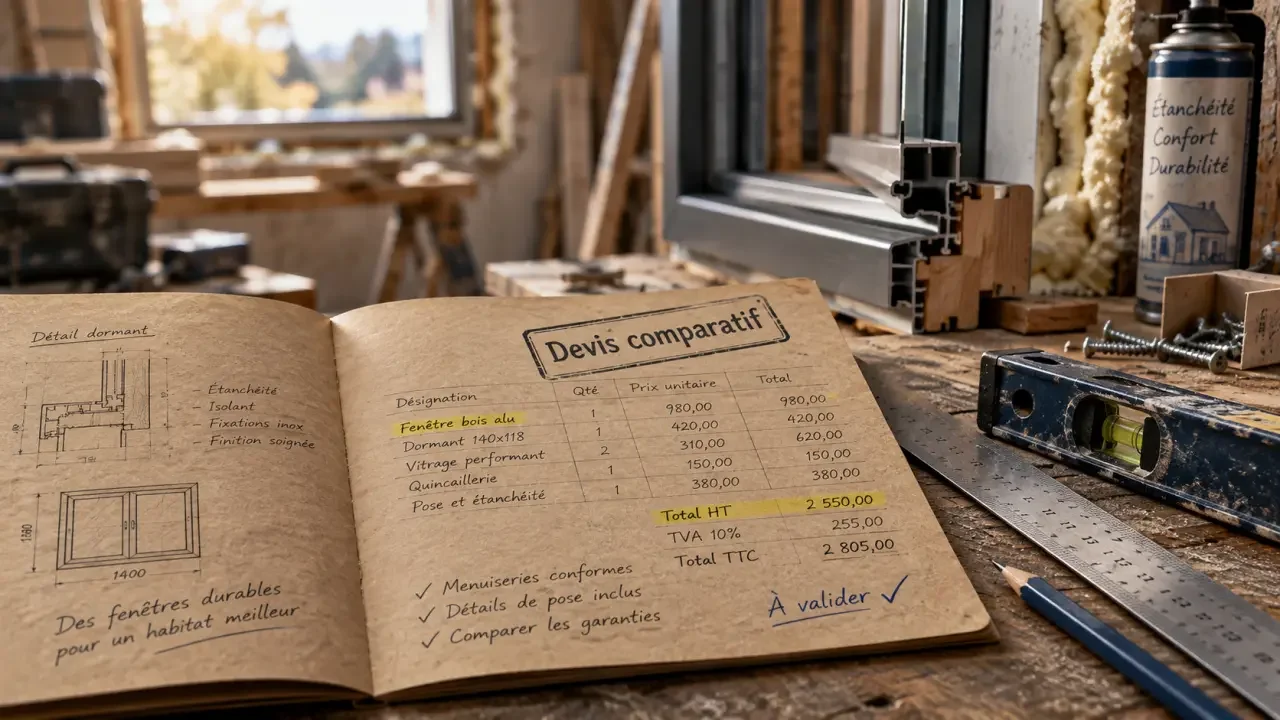 Détail dormant
– Étanchéité
– Isolant
– Fixations inox
– Finition soignée
1400
Des fenêtres durables
pour un habitat meilleur
Devis comparatif
Désignation Qté Prix unitaire Total
Fenêtre bois alu 1 980,00 980,00
Dormant 140x118 1 420,00 420,00
Vitrage performant 2 310,00 620,00
Quincaillerie 150,00 150,00
Pose et étanchéité 1 380,00 380,00
Total HT 2 550,00
TVA 10% 255,00
Total TTC 2 805,00
✓ Menuiseries conformes
✓ Détails de pose inclus
✓ Comparer les garanties
À valider ✓
Étanchéité
Confort
Durabilité